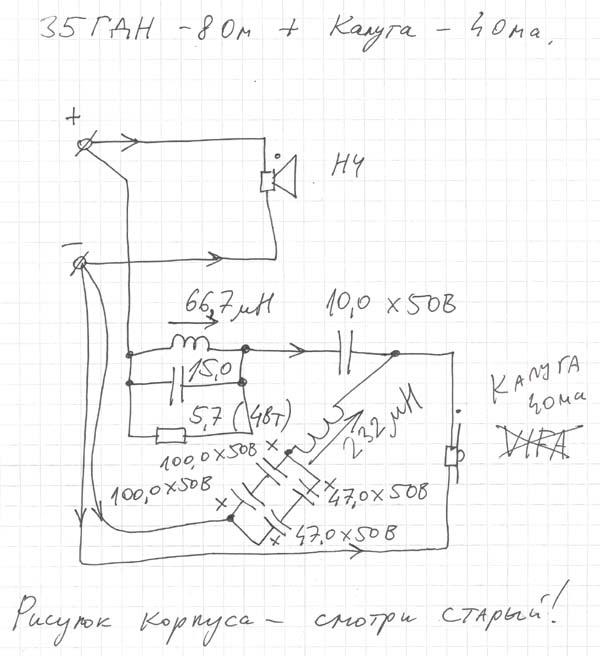 35ГДН - 8 Ом + Калуга - 4 Ома.
+
НЧ
−
66,7 μH
10,0 x 50В
15,0
5,7 (4Вт)
КАЛУГА
4 Ома
VIFA
232 μH
100,0 x 50В
100,0 x 50В
47,0 x 50В
47,0 x 50В
Рисунок корпуса - смотри старый!